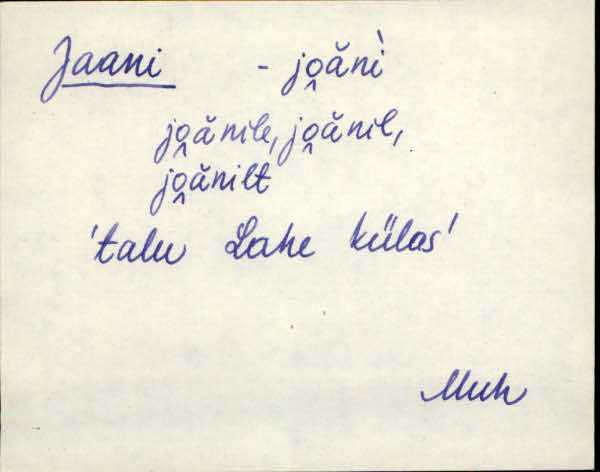 Jaani - jo̭ăǹi
jo̭ănile, jo̭ănil,
jo̭ănilt
'talu Lahe külas'
Muh